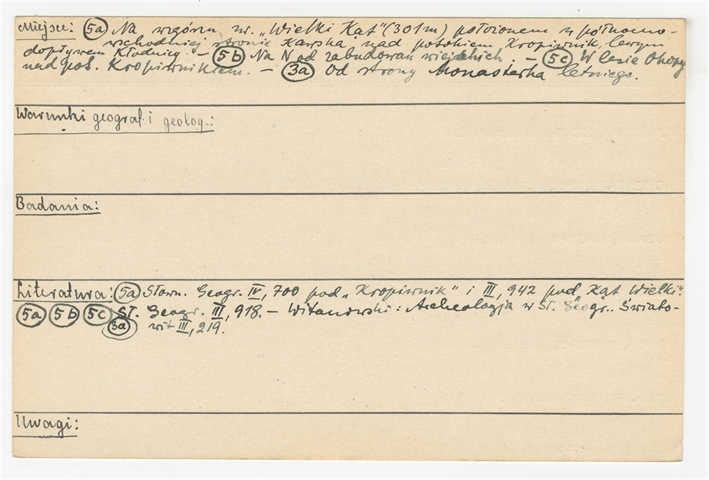 Miejsce: (5a) Na wzgórzu zw. „Wielki Kąt" (301m) położonem w północno-
wschodniej stronie Karska nad potokiem Kropiwnik, lewym
dopływem Kłodnicy – (5b) Na N od zabudowań wiejskich. – (5c) W lesie Okopy
nad pot. Kropiwnikiem. – (3a) Od strony Monasterka Letniego.
Warunki geograf. i geolog.:
Badania:
Literatura: (5a) Słown. Geogr. IV, 700 pod „Kropiwnik" i III, 942 pod „Kąt Wielki".
(5a) (5b) (5c) Sł. Geogr. III, 918. – Witanowski: Archeologja w Sł. Geogr.. Świato-
(3a) wit III, 219.
Uwagi: